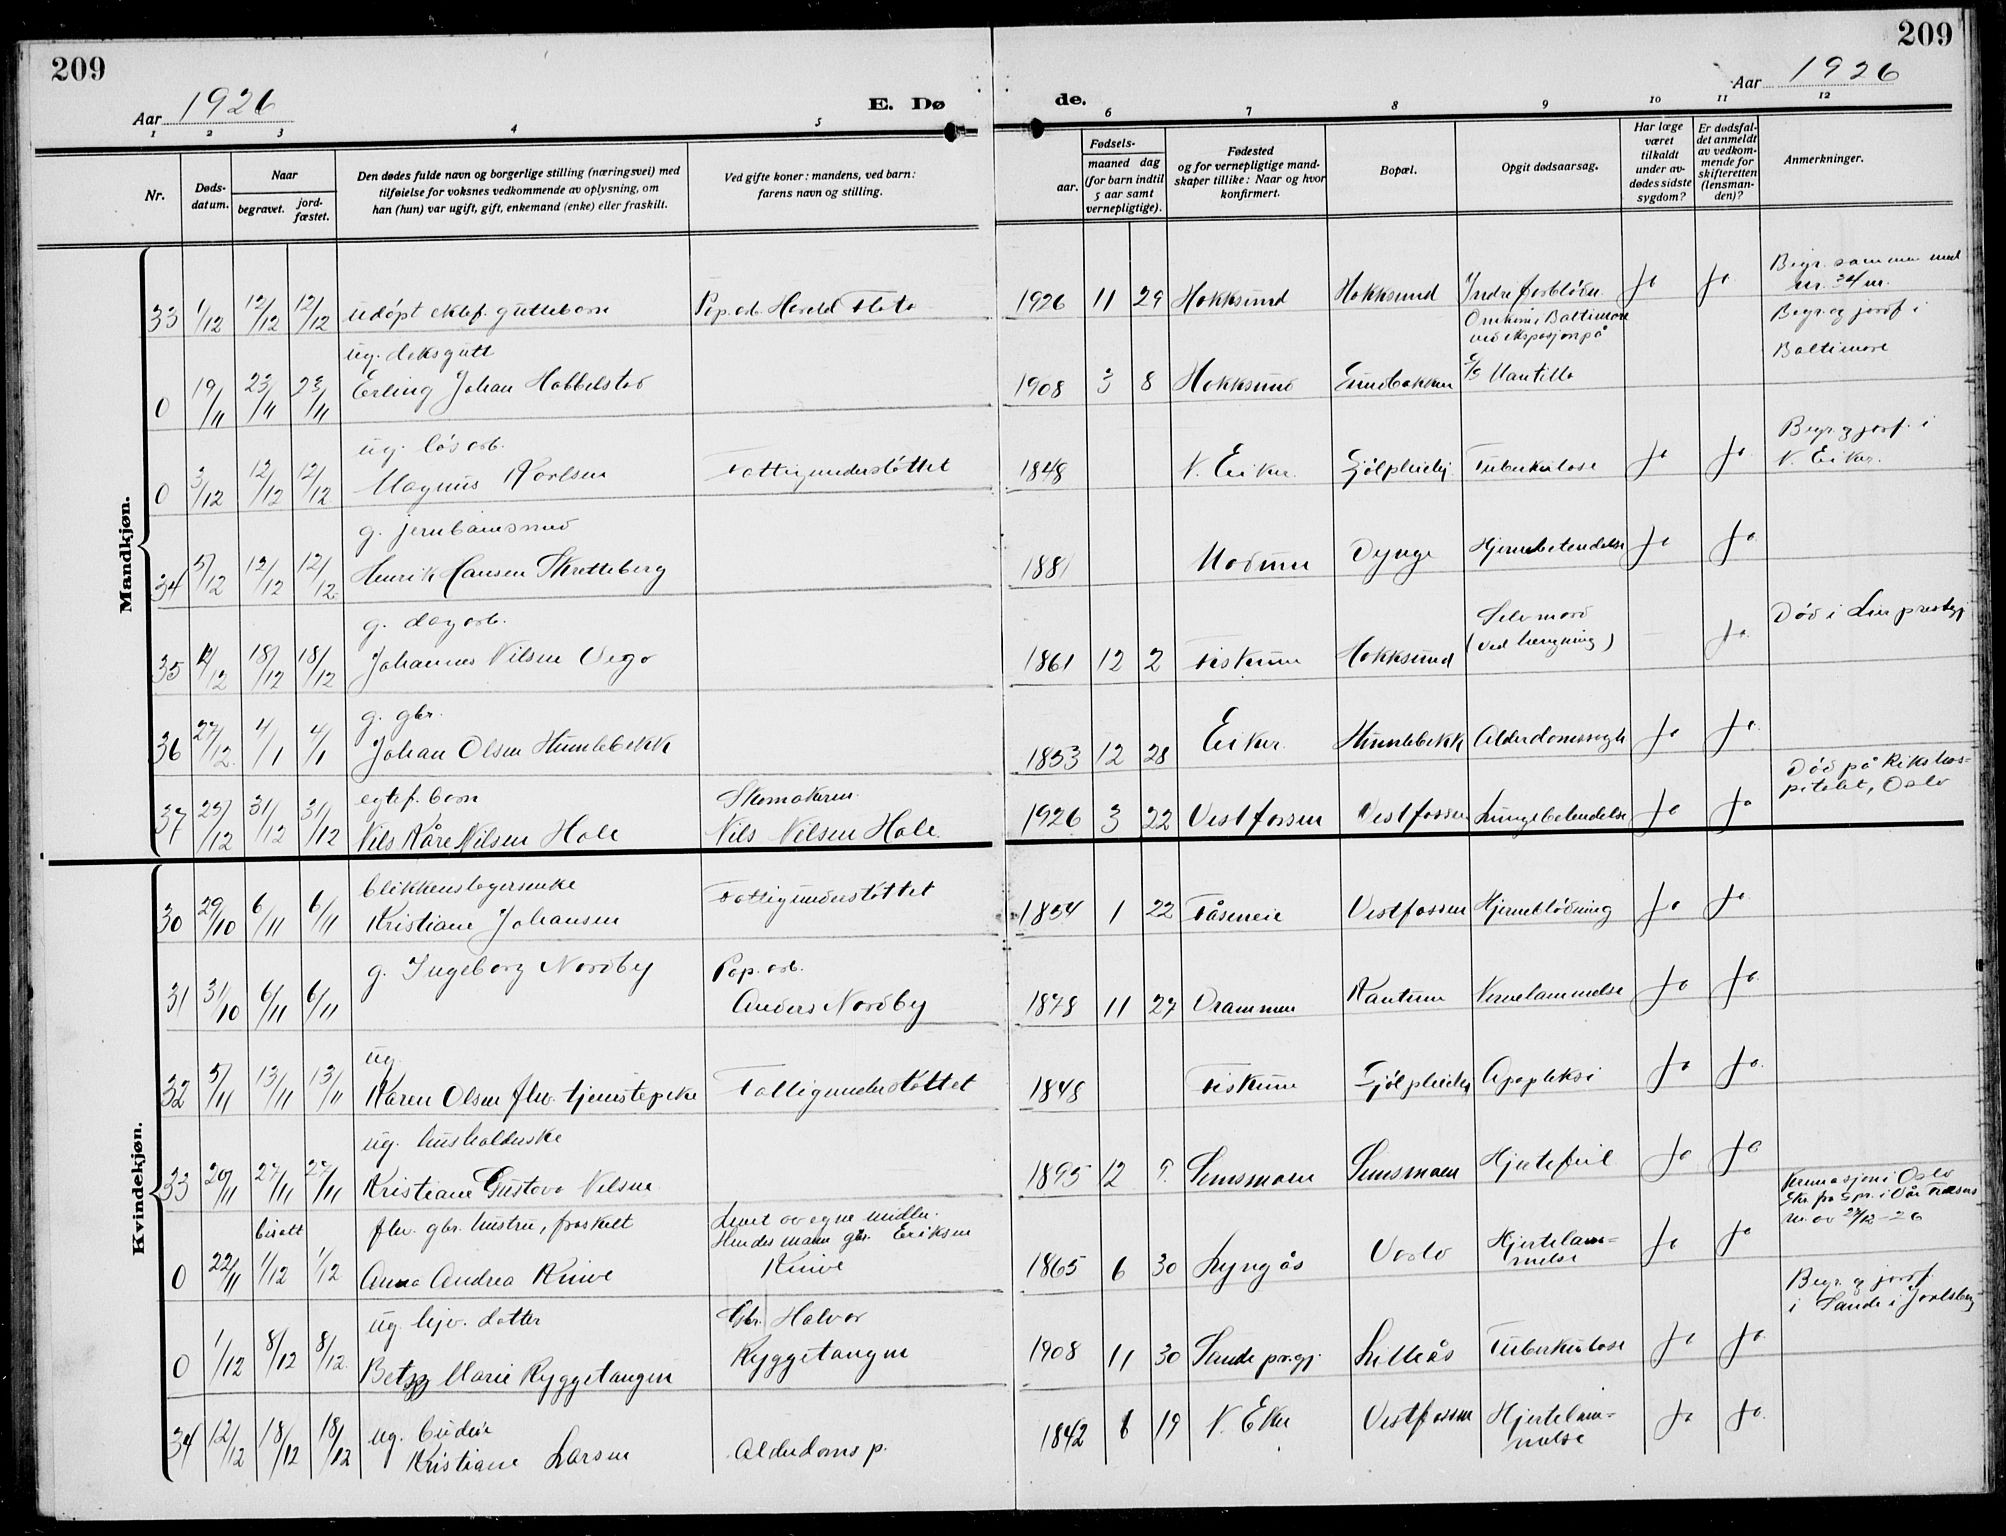 209
209
Aar 1926
E. Dø
de.
Aar 1926
1 2 3 4 5 6 7 8 9 10 11 12
Nr.
Døds-
datum.
Naar
begravet.
jord-
fæstet.
Den dødes fulde navn og borgerlige stilling (næringsvei) med
tilføielse for voksnes vedkommende av oplysning, om
han (hun) var ugift, gift, enkemand (enke) eller fraskilt.
Ved gifte koner: mandens, ved barn:
farens navn og stilling.
Fødsels-
aar.
maaned dag
(for barn indtil
5 aar samt
vernepligtige).
Fødested
og for vernepligtige mand-
skaper tillike: Naar og hvor
konfirmert.
Bopæl.
Opgit dødsaarsag.
Har læge
været
tilkaldt
under av-
dødes sidste
sygdom?
Er dødsfal-
det anmeldt
av vedkom-
mende for
skifteretten
(lensman-
den)?
Anmerkninger.
Mandkjøn.
33 1/12 12/12 12/12 udöpt ektef. guttebarn Pap. arb. Harald Flata 1926 11 29 Hokksund Hokksund Indre forblödn. ja ja Begr. sammen med
nr. 34 m.
ug. deksgutt
0 19/11 23/11 23/11 Erling Johan Hobbelstad 1908 3 8 Hokksund Sundbakken Omkom i Baltimore
ved eksplosjon på
E/S Mantilla
Begr. og jordf. i
Baltimore
ug. løsarb.
0 3/12 12/12 12/12 Magnus Karlsen Fattigunderstöttet 1848 N. Eiker Fjölpleiehj Tuberkulose ja ja Begr. og jordf. i
N. Eiker.
g. jernbanesmed
34 5/12 12/12 12/12 Henrik Hansen Skretteberg 1881 Modum Dynge Hjernebetendelse ja ja
g. dagarb.
35 12/12 18/12 18/12 Johannes Nilsen Vego 1861 12 2 Fiskum Hokksund Selvmord
(ved hengning) – ja Död i Lier prestegj
g. gbr.
36 27/12 4/1 4/1 Johan Olsen Humlebekk 1853 12 28 Eiker Humlebekk Alderdomssvagh ja ja
egtef. barn Skomakeren
37 25/12 31/12 31/12 Nils Kåre Nilsen Hole Nils Nilsen Hole. 1926 3 22 Vestfossen Vestfossen Lungebetendelse ja ja Död på Rikshos-
pitalet, Oslo
Kvindekjøn.
blikkenslagerenke
30 29/10 6/11 6/11 Kristiane Johansen Fattigunderstöttet 1854 1 22 Fåsmeie Vestfossen Hjerneblödning ja ja
31 31/10 6/11 6/11 g. Ingeborg Nordby Pap. arb.
Anders Nordby 1878 11 27 Drammen Kantum Nervelammelse ja ja
ug.
32 5/11 13/11 13/11 Karen Olsen fhv. tjenestepike Fattigunderstöttet 1848 Fiskum Fjölpleiehj Apopleksi ja ja
ug. husholderske
33 20/11 27/11 27/11 Kristiane Gustava Nilsen 1895 12 9. Semsmoen Semsmoen Hjertefeil ja ja
bisatt fhv. gbr. hustru, fraskilt Levet av egne midler.
Hendes mann gbr. Eriksen
0 22/11 1/12 1/12 Anna Andrea Knive Knive 1865 6 30 Lyngås Oslo Hjertelam-
melse ja ja Kremasjon i Oslo
Skr. fra spr. i Vår Frelsers
m. av 27/12-26
ug. hjv. datter Gbr. Halvor
0 1/12 8/12 8/12. Betzy Marie Ryggetangen Ryggetangen 1908 11 30 Sande pr.gj. Lilleås Tuberkulose ja ja Begr. og jordf.
i Sande i Jarlsberg
ug. budeie
34 12/12 18/12 18/12 Kristiane Larsen Alderdoms p. 1842 6 19 N. Eker Vestfossen Hjertelam-
melse ja ja